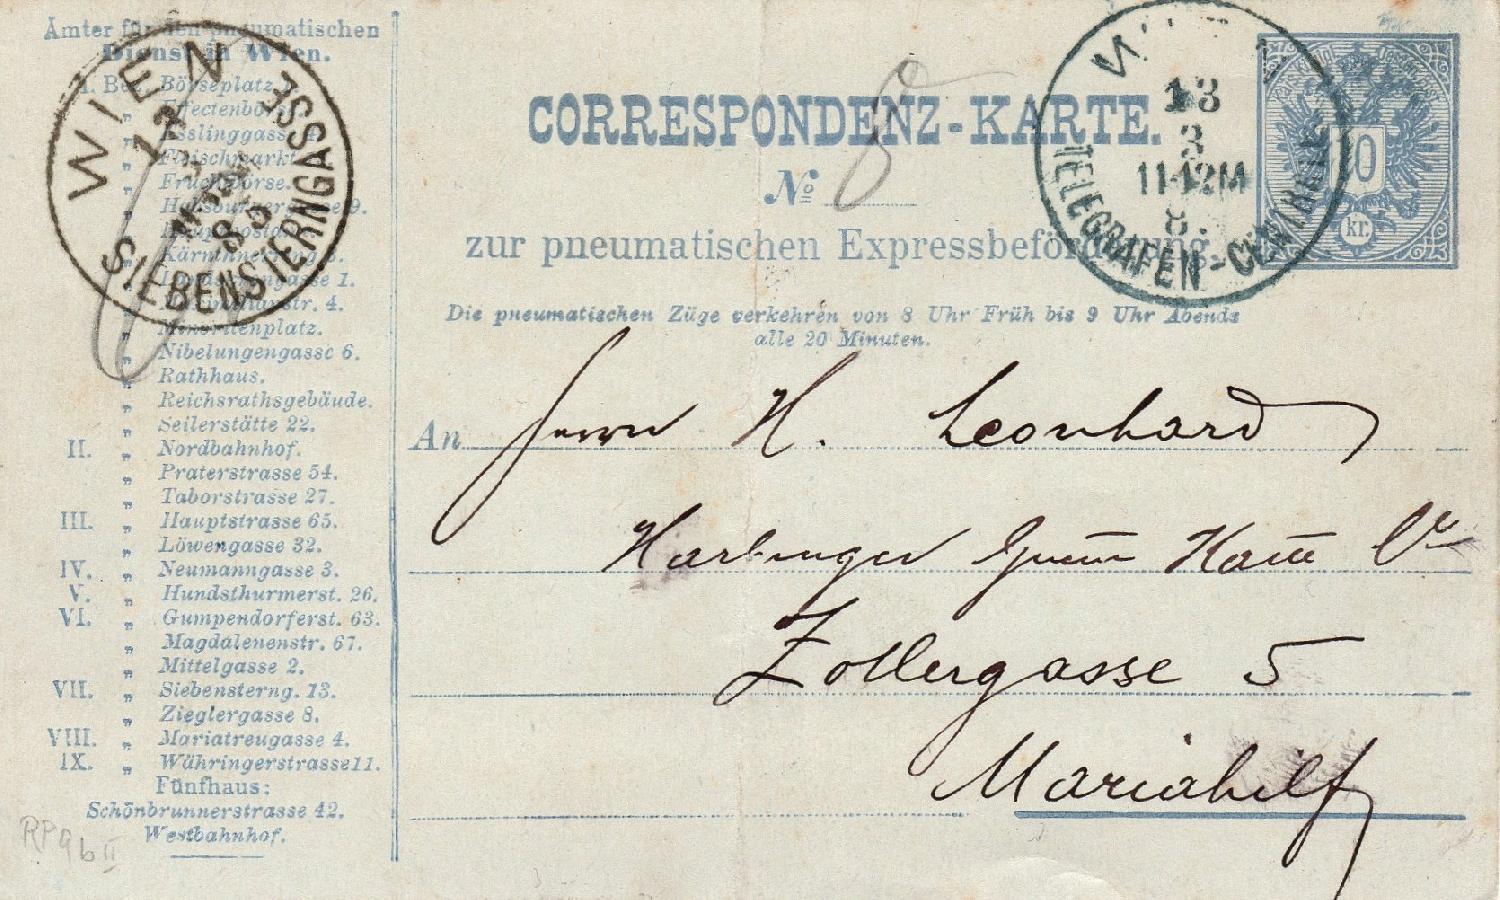 Ämter für den pneumatischen
Dienst in Wien.
I. Bez. Börseplatz 1.
" Effectenbörse
" Esslinggasse 4.
" Fleischmarkt
" Fruchtbörse.
" Habsburgergasse 9.
"
" Kärnthnerring 3.
" 1.
" str. 4.
" Minoritenplatz.
" Nibelungengasse 6.
" Rathhaus.
" Reichsrathsgebäude.
" Seilerstätte 22.
II. " Nordbahnhof.
" Praterstrasse 54.
" Taborstrasse 27.
III. " Hauptstrasse 65.
" Löwengasse 32.
IV. " Neumanngasse 3.
V. " Hundsthurmerst. 26.
VI. " Gumpendorferst. 63.
" Magdalenenstr. 67.
" Mittelgasse 2.
VII. " Siebensterng. 13.
" Zieglergasse 8.
VIII. " Mariatreugasse 4.
IX. " Währingerstrasse 11.
Fünfhaus:
Schönbrunnerstrasse 42.
Westbahnhof.
RP 9b II
WIEN
SIEBENSTERNGASSE
13
3
85
CORRESPONDENZ-KARTE.
No
zur pneumatischen Expressbeförderung.
Die pneumatischen Züge verkehren von 8 Uhr Früh bis 9 Uhr Abends
alle 20 Minuten.
13
3
11-12M
8.
TELEGRAFEN-CENTRALE
10
kr.
An Herrn H. Leonhard
Zollergasse 5
Mariahilf